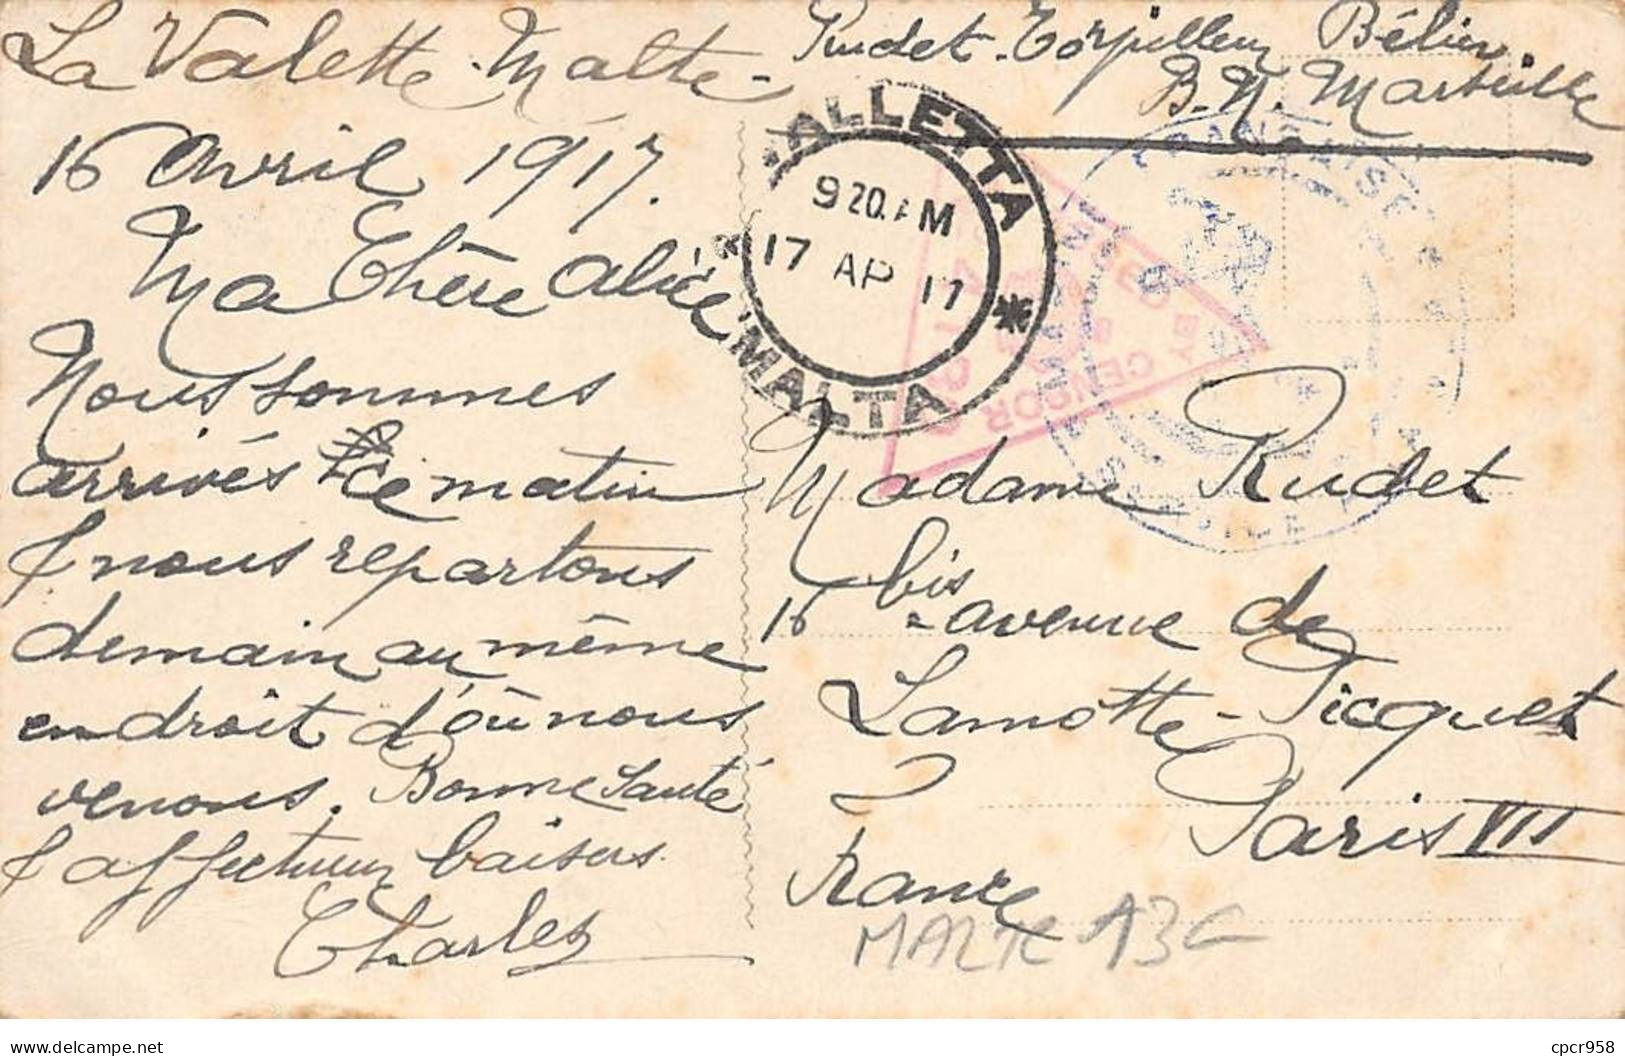 La Valette. Malte -
16 avril 1917.
Ma Chère Alice
Nous sommes
arrivés ce matin
& nous repartons
demain au même
endroit d'où nous
venons. Bonne Santé
& affectueux baisers
Charles
Rudet - Torpilleur Bélier.
B. N. Marseille
VALLETTA
9 20. AM
17 AP 17
MALTA
PASSED
BY CENSOR
FRANÇAISE
Madame Rudet
16 bis avenue de
Lamotte-Picquet
Paris VII
France
MALTE 13€
cpcr958